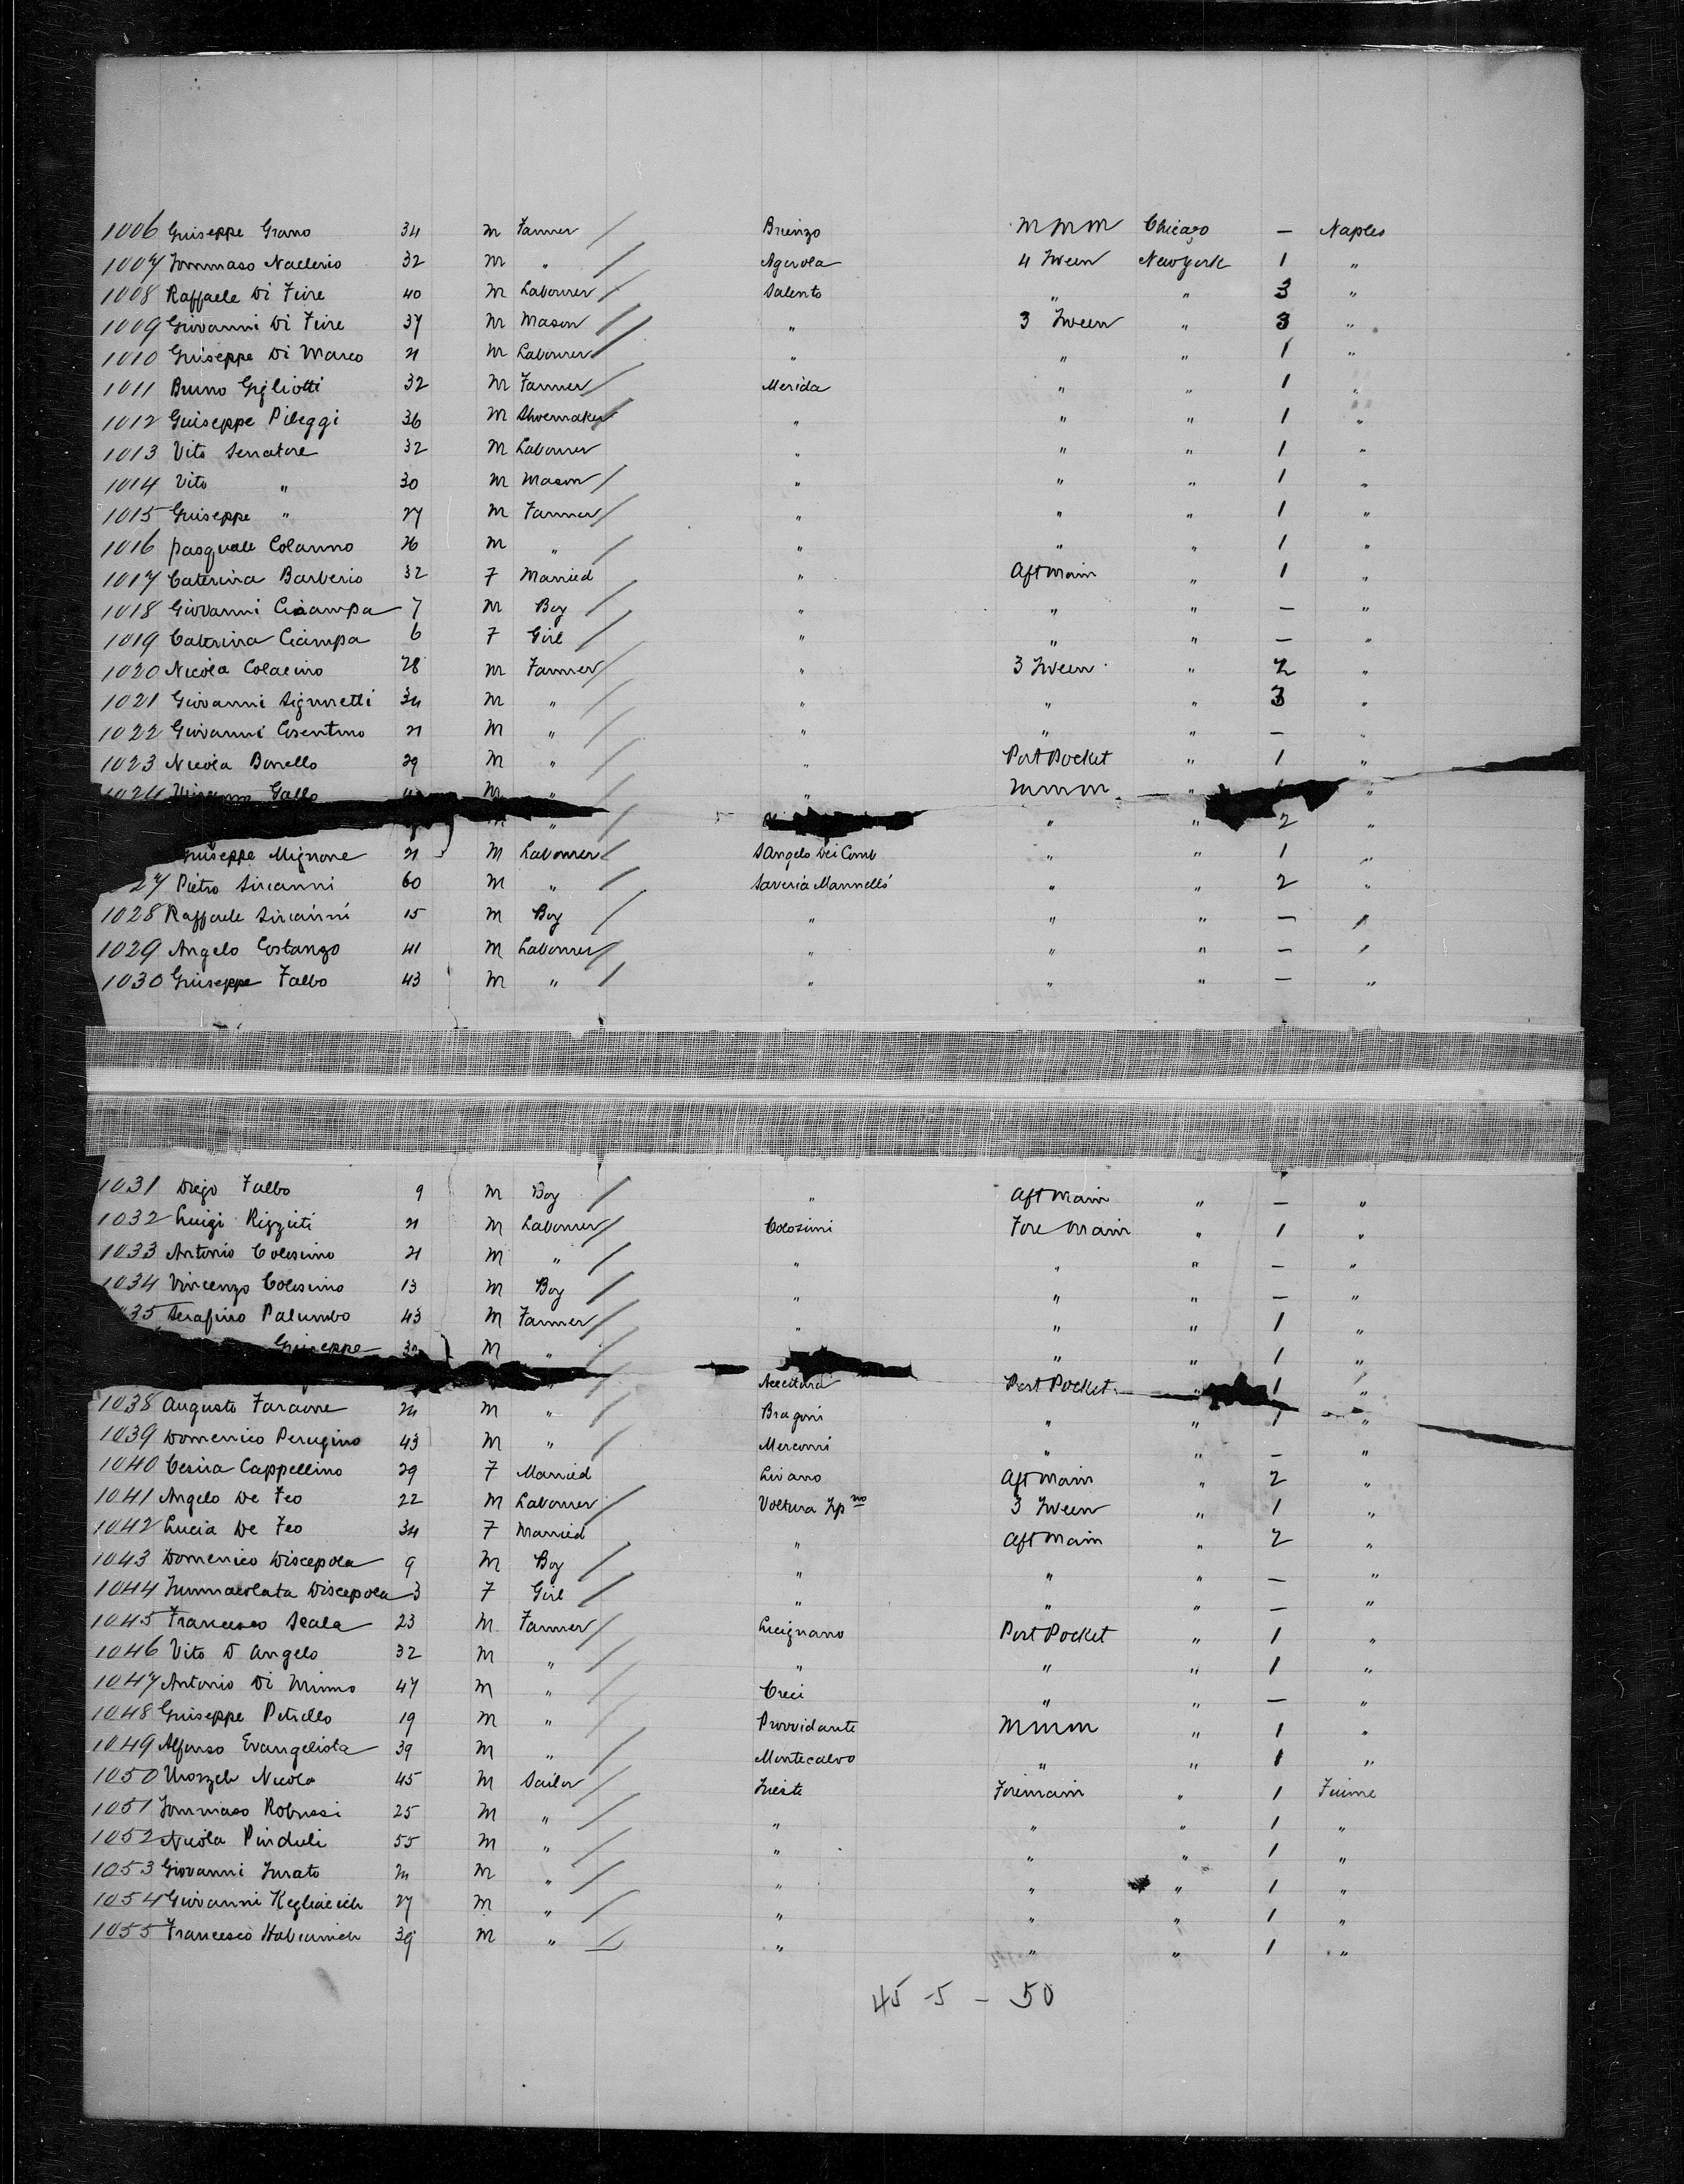 1006 Guiseppe Grano 34 m Farmer / Brienzo M M M Chicago — Naples
1007 Tommaso Naclerio 32 m " / Agerola 4 Tween New York 1 "
1008 Raffaele Di Fiore 40 m Labourer / Salento " " 3 "
1009 Giovanni Di Fiore 37 m Mason / " 3 Tween " 3 "
1010 Guiseppe Di Marco 21 m Labourer / " " " 1 "
1011 Bruno Gigliotti 32 m Farmer / Merida " " 1 "
1012 Guiseppe Pileggi 36 m Shoemaker / " " " 1 "
1013 Vito Serratore 32 m Labourer " " " 1 "
1014 Vito " 30 m Mason / " " " 1 "
1015 Guiseppe " 27 m Farmer / " " " 1 "
1016 Pasquale Colanno 26 m " / " " " 1 "
1017 Caterina Barberio 32 F Married " Aft Main " 1 "
1018 Giovanni Ciampa 7 m Boy / " " " — "
1019 Caterina Ciampa 6 F Girl / " " " — "
1020 Nicola Colacino 28 m Farmer / " 3 Tween " 2 "
1021 Giovanni Signoretti 34 m " / " " " 3 "
1022 Giovanni Cosentino 21 m " / " " " — "
1023 Nicola Bonello 29 m " / " Port Pocket " 1 "
1024 Gallo m " / " M M M " "
m " / " " 2 "
Guiseppe Mignone 21 m Labourer / S Angelo Dei Comb " " 1 "
27 Pietro Sirianni 60 m " / Saveria Mannelli " " 2 "
1028 Raffaele Sirianni 15 m Boy / " " " — "
1029 Angelo Costanzo 41 m Labourer / " " " — "
1030 Guiseppe Falbo 43 m " / " " " — "
1031 Diego Falbo 9 m Boy / " Aft Main " — "
1032 Luigi Rizzuti 21 m Labourer / Colosimi Fore Main " 1 "
1033 Antonio Colosimo 21 m " / " " " — "
1034 Vincenzo Colosimo 13 m Boy / " " " — "
35 Serafino Palumbo 43 m Farmer / " " " 1 "
Guiseppe m " / " " 1 "
" / Accettura Port Pocket " 1 "
1038 Augusto Faraone 24 m " / Bragoni " " 1 "
1039 Domenico Perugino 43 m " / Merconi " " — "
1040 Cesira Cappellino 29 F Married Livano Aft Main " 2 "
1041 Angelo De Feo 22 m Labourer / Voltura Irp no 3 Tween " 1 "
1042 Lucia De Feo 34 F Married " Aft Main " 2 "
1043 Domenico Discepola 9 m Boy / " " " — "
1044 Immacolata Discepola 3 F Girl / " " " — "
1045 Francesco Scala 23 m Farmer / Licignano Port Pocket " 1 "
1046 Vito D Angelo 32 m " / " " " 1 "
1047 Antonio Di Mimno 47 m " / Creci " " — "
1048 Guiseppe Petrello 19 m " / Provvidante M M M " 1 "
1049 Alfonso Evangelista 39 m " / Montecalvo " " 1 "
1050 Nicola 45 m Sailor / Trieste Foremain " 1 Fiume
1051 Tommaso Robussi 25 m " / " " " 1 "
1052 Nicola Pinduli 55 m " / " " " 1 "
1053 Giovanni Turato 24 m " / " " " 1 "
1054 Giovanni Kegliacich 27 m " / " " " 1 "
1055 Francesco 39 m " / " " " 1 "
45 - 5 - 50